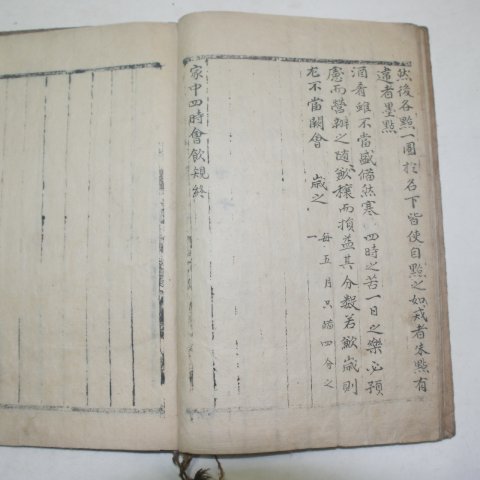 然後各點一圈於名下皆使自點之如戒者朱點有
違者墨點
酒肴雖不當盛備然寒 四時之苦一日之樂必預
慮而營辦之隨歉穰而損益其分數若歉歲則
尤不當闕會 歲之
每五月只 四分之
一
家中四時會飮規終